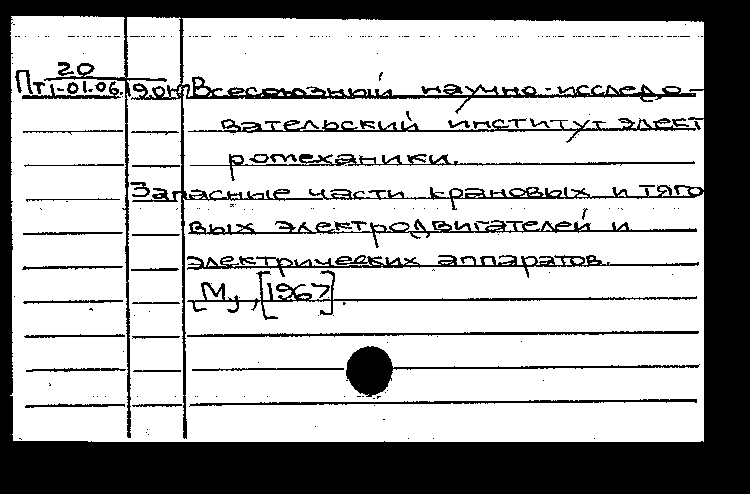 20
Пт 1-01.06. Всесоюзный научно-исследо-
вательский институт элект
ротеханики.
Запасные части крановых и тяго
вых электродвигателей и
электрических аппаратов.
[М], [1967].